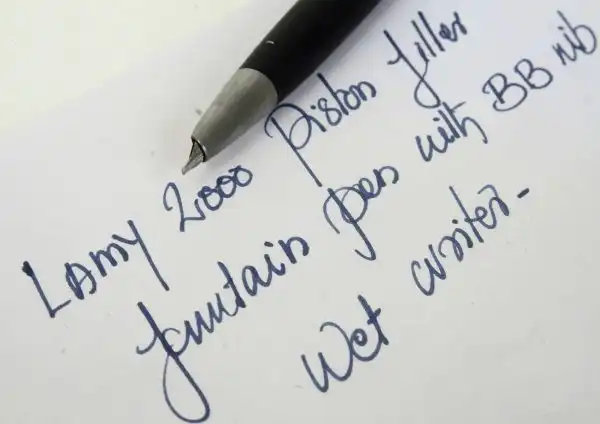 LAMY 2000 Piston filler
fountain pen with BB nib
Wet writer.